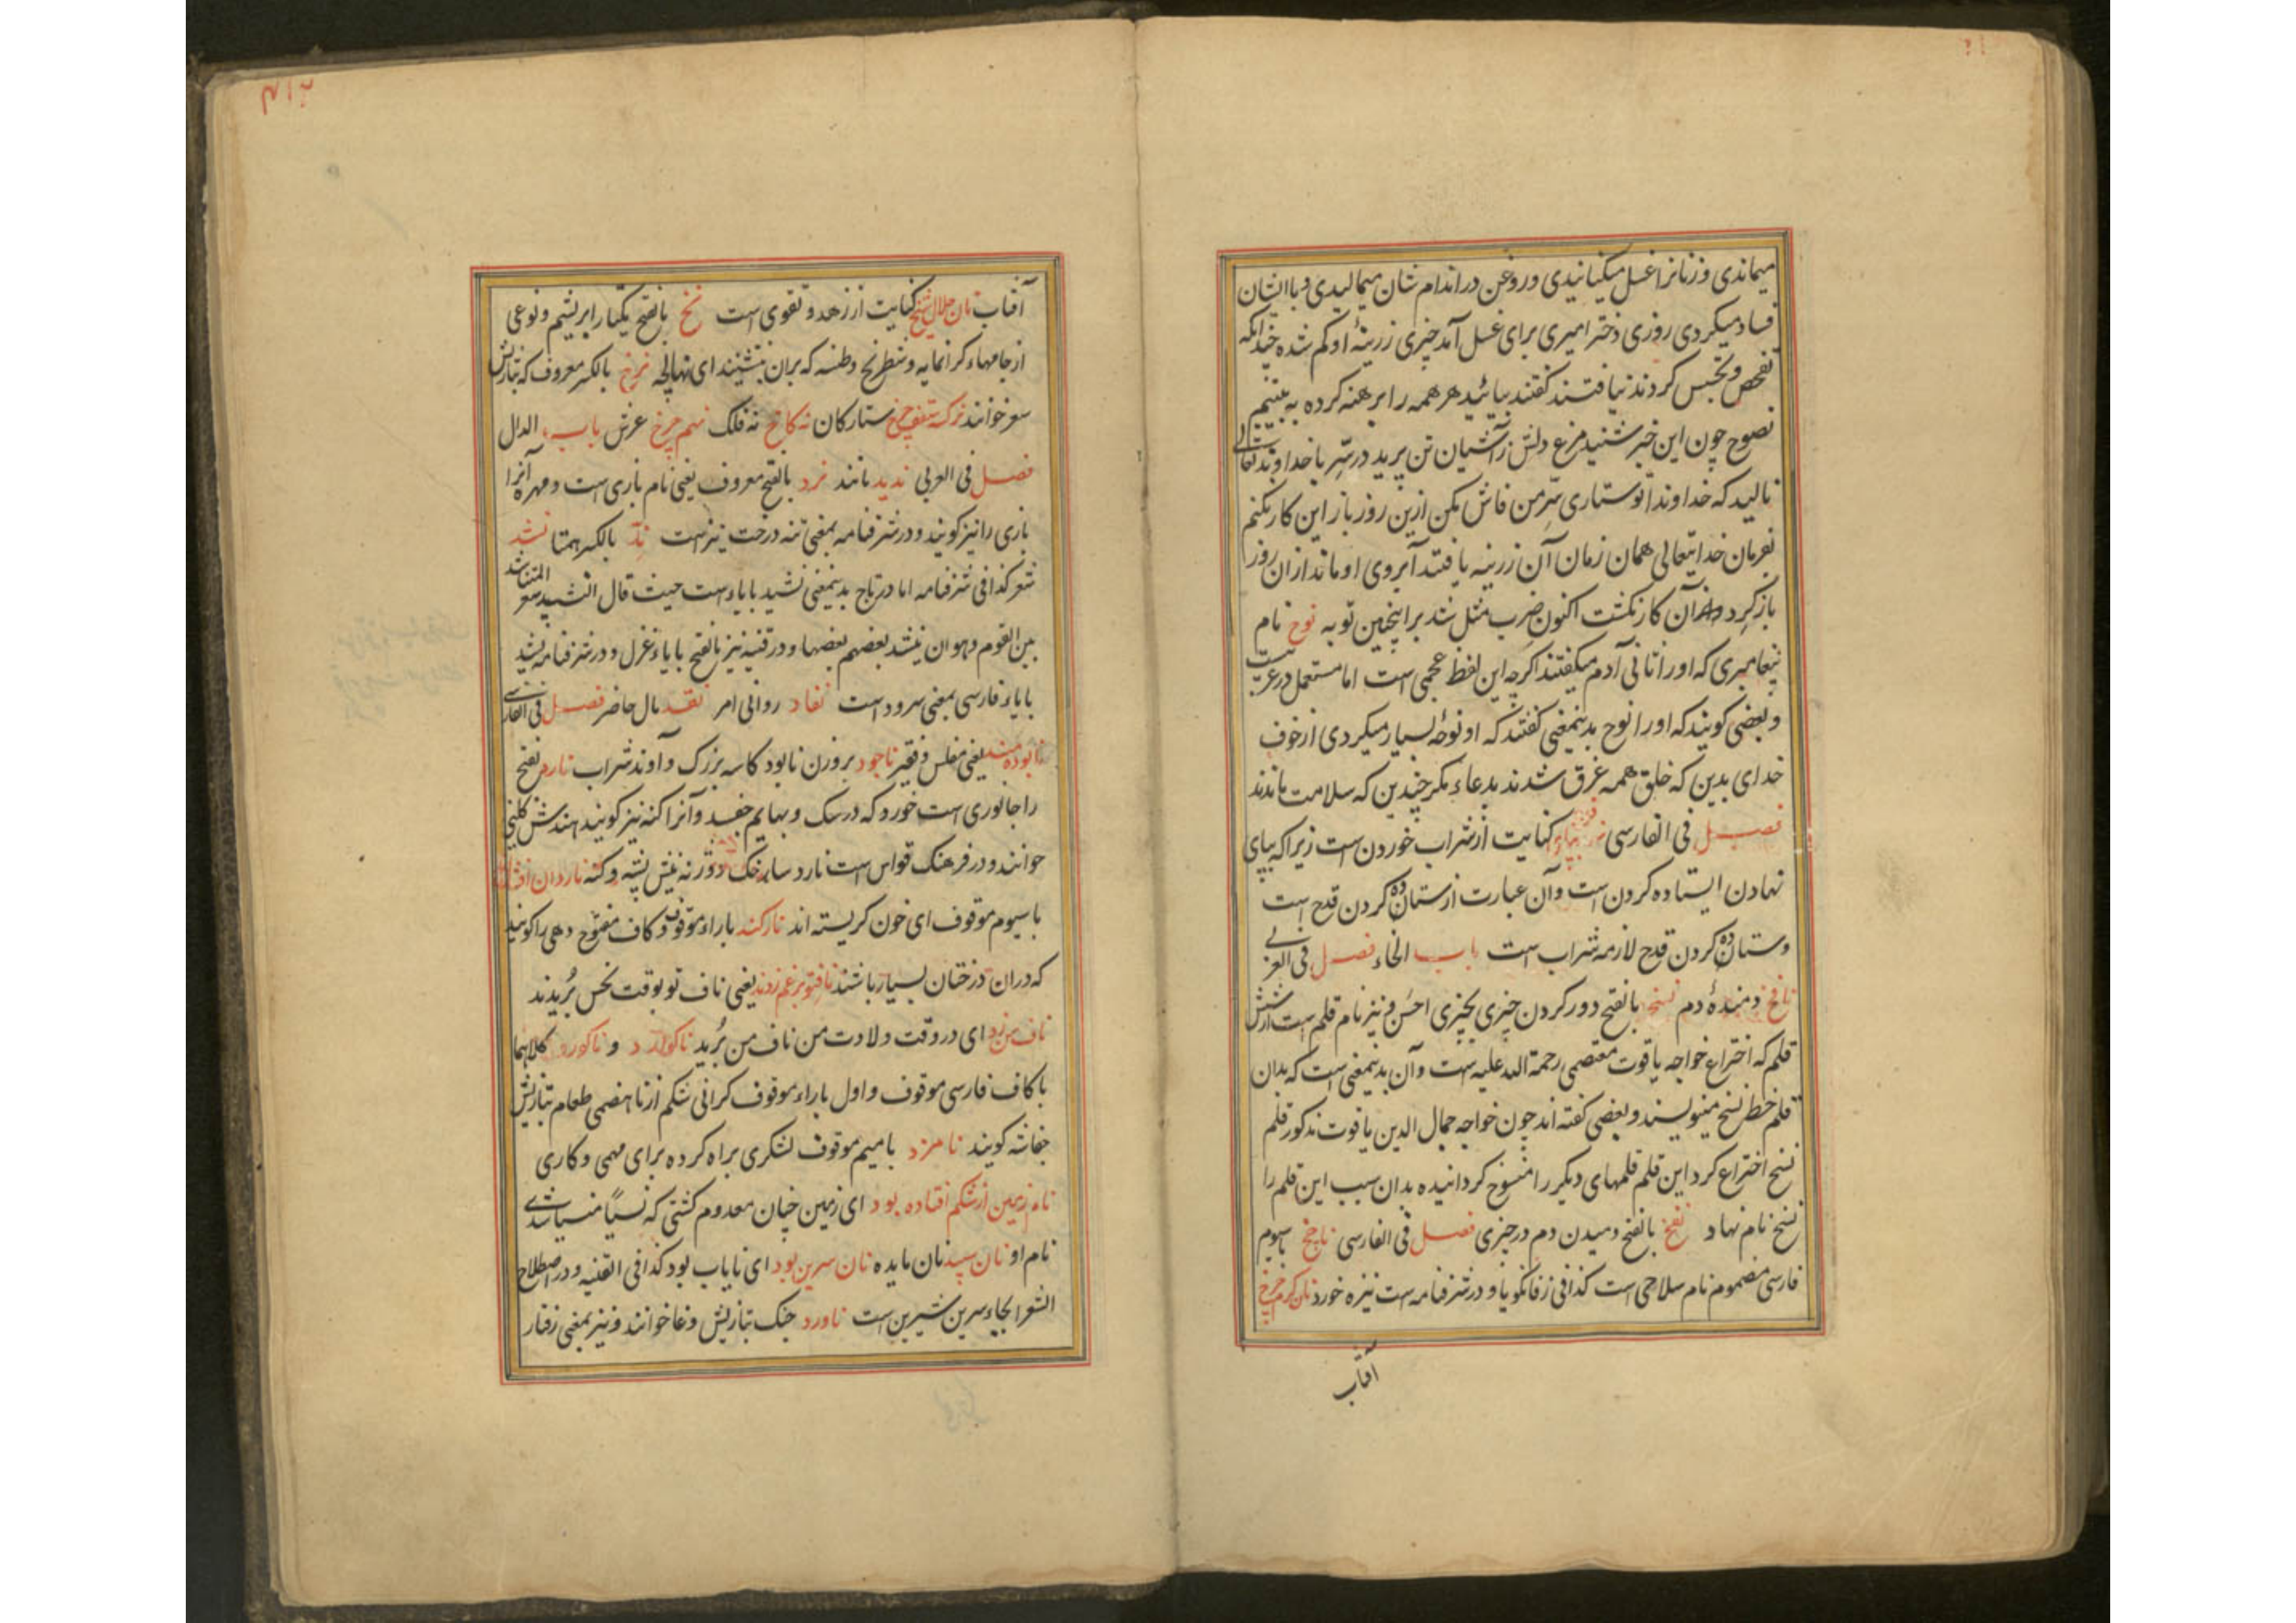 میماندی و زنانرا غسل میکنانیدی و روغن در اندام شان میمالیدی و با ایشان
فساد میکردی روزی دختر امیری برای غسل آمد چیزی زرینهٔ او کم شده چندانکه
تفحص و تجسس کردند نیافتند کفتند بیائید هر همه را برهنه کرده به بینیم
نصوح چون این خبر شنید مرغ دلش ز آشیان تن پرید در سر با خداوند تعالی
نالید که خداوندا تو ستاری سر من فاش مکن ازین روز باز این کار نکنم
بفرمان خدایتعالی همان زمان آن زرینه یافتند آبروی او ماند از ان روز
باز کرد آن کار نکشت اکنون ضرب مثل شد بر اینچنین توبه نوح نام
پیغامبری که اورا ثانی آدم میکفتند اکرچه این لفظ عجمی است اما مستعمل در عرب
و بعضی کویند که اورا نوح بدینمعنی کفتند که او نوحه بسیار میکردی از خوف
خدای بدین که خلق همه غرق شدند بدعاء مکر چندین که سلامت ماندند
فصل فی الفارسی کنایت از شراب خوردن است زیرا که بپای
نهادن ایستاده کردن است و آن عبارت از ستمان کردن قدح است
و ستمان کردن قدح لازمه شراب است باب الخاء فصل فی العربی
نافخ دمندهٔ دم نسخ بالفتح دور کردن چیزی بچیزی احسن و نیز نام قلم است از شش
قلم که اختراع خواجه یاقوت معتصمی رحمة الله علیه است و آن بدینمعنی است که بدان
قلم خط نسخ مینویسند و بعضی کفته اند چون خواجه جمال الدین یاقوت مذکور قلم
نسخ اختراع کرد این قلم قلمهای دیکر را منسوخ کردانیده بدان سبب این قلم را
نسخ نام نهاد نفخ بالفتح دمیدن دم در چیزی فصل فی الفارسی ناجخ با سیوم
فارسی مضموم نام سلاحی است کذا فی زفانکویا و در شرفنامه است نیزه خورد نان کرم چرخ
آفتاب
۴۱۲
آفتاب نان حلال شیخ کنایت از زهد و تقوی است نخ بالفتح یکتار ابریشم و نوعی
از جامهاء کرانمایه و شطرنج و طنسه که بران نشینند ای نهالچه نرخ بالکسر معروف که بتازیش
سعر خوانند ستارکان نه کاخ نه فلک نهم چرخ عرش باب الدال
فصل فی العربی ندید مانند نرد بالفتح معروف یعنی نام بازی است و مهره آنرا
بازی را نیز کویند و در شرفنامه بمعنی تنه درخت نیز است ند بالکسر همتا نشد
شعر کذا فی شرفنامه اما در تاج بدینمعنی نشید با یاء است حیث قال النشید شعر المتناشد
بین القوم و هو ان ینشد بعضهم بعضها و در قنیه نیز بالفتح با یاء غزل و در شرفنامه نشید
با یاء فارسی بمعنی سرود است نفاد روانی امر نقد مال حاضر فصل فی الفارسی
نابوده مند یعنی مفلس و فقیر ناجود بر وزن نابود کاسه بزرک و آوند شراب نارد بفتح
را جانوری است خورد که در سک و بهایم چفسد و آنرا کنه نیز کویند هندش کلنی
خوانند و در فرهنک قواس است نارد
با سیوم موقوف ای خون کریسته اند نارکند با راء موقوف و کاف مفتوح دهی را کویند
که دران درختان بسیار باشند نافتو بر غم زدند یعنی ناف تو بوقت نحس بریدند
ناف من زد ای در وقت ولادت من ناف من برید ناکوارد و ناکورد کلاهما
با کاف فارسی موقوف و اول با راء موقوف کرانی شکم از نا هضمی طعام بتازیش
کویند نامزد با میم موقوف لشکری براه کرده برای مهمی و کاری
نام زمین از شکم افتاده بود ای زمین چنان معدوم کشتی که نسیا منسیا شدی
نام او نان سپید نان مایده نان سرین بود ای نایاب بود کذا فی القنیه و در اصطلاح
الشعرا بجاء سرین شیرین است ناورد جنک بتازیش وغا خوانند و نیز بمعنی رفتار